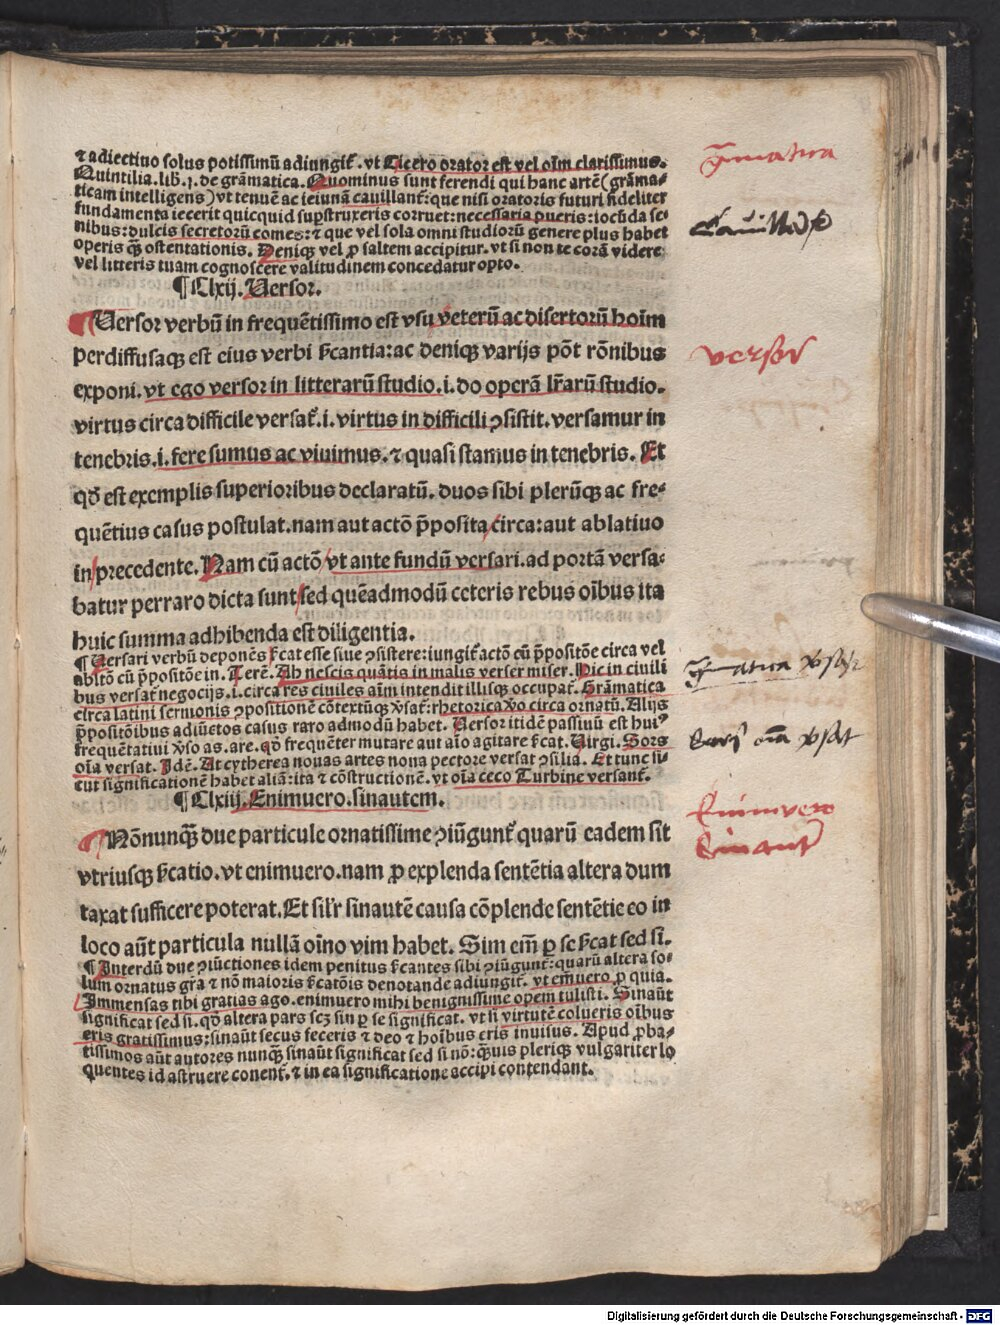 ⁊ adiectiuo solus potissimū adiungit᷑. vt Cicero orator est vel oīm clarissimus.
Quintilia. lib. j. de grāmatica. Quominus sunt ferendi qui hanc artē (grāma-
ticam intelligens) vt tenuē ac ieiunā cauillant᷑: que nisi oratoris futuri fideliter
fundamenta iecerit quicquid supstruxeris corruet: necessaria pueris: iocūda se-
nibus: dulcis secretorū comes: ⁊ que vel sola omni studiorū genere plus habet
operis qȝ ostentationis. Deniqȝ vel ꝓ saltem accipitur. vt si non te corā videre
vel litteris tuam cognoscere valitudinem concedatur opto.
¶ Clxij. Versor.
Versor verbū in frequētissimo est vsu veterū ac disertorū hoīm
perdiffusaqȝ est eius verbi sc̄antia: ac deniqȝ varijs pōt rōnibus
exponi. vt ego versor in litterarū studio .i. do operā lr̄arū studio.
virtus circa difficile versat᷑ .i. virtus in difficili ꝯsistit. versamur in
tenebris .i. fere sumus ac viuimus. ⁊ quasi stamus in tenebris. Et
qd̄ est exemplis superioribus declaratū. duos sibi plerūqȝ ac fre-
quētius casus postulat. nam aut actō p̄posita circa: aut ablatiuo
in precedente. Nam cū actō vt ante fundū versari. ad portā versa-
batur perraro dicta sunt sed quēadmodū ceteris rebus oībus ita
huic summa adhibenda est diligentia.
¶ Versari verbū deponēs sc̄at esse siue ꝯsistere: iungit᷑ actō cū p̄positōe circa vel
abltō cū p̄positōe in. Terē. Ah nescis quātis in malis verser miser. Dic in ciuili
bus versat᷑ negocijs .i. circa res ciuiles aīm intendit illisqȝ occupat᷑. Grāmatica
circa latini sermonis ꝯpositionē cōtextūqȝ v̄sat᷑: rhetorica v̄o circa ornatū. Alijs
p̄positōibus adiūctos casus raro admodū habet. Versor itidē passiuū est huiꝰ
frequētatiui v̄so as. are. qd̄ frequēter mutare aut aīo agitare sc̄at. Virgi. Sors
oīa versat. Idē. At cytherea nouas artes noua pectore versat ꝯsilia. Et tunc si-
cut significationē habet aliā: ita ⁊ cōstructionē. vt oīa ceco Turbine versant᷑.
¶ Clxiij. Enimuero. sinautem.
Nōnunqȝ due particule ornatissime ꝯiūgunt᷑ quarū eadem sit
vtriusqȝ sc̄atio. vt enimuero. nam ꝓ explenda sentētia altera dum
taxat sufficere poterat. Et sil'r sinautē causa cōplende sentētie eo in
loco aūt particula nullā oīno vim habet. Sim em̄ ꝑ se sc̄at sed si.
¶ Interdū due ꝯiūctiones idem penitus sc̄antes sibi ꝯiūgunt᷑: quarū altera so-
lum ornatus gr̄a ⁊ nō maioris sc̄atōis denotande adiungit᷑. vt em̄uero ꝓ quia.
Immensas tibi gratias ago. enimuero mihi benignissime opem tulisti. Sinaūt
significat sed si. qd̄ altera pars scȝ sin ꝑ se significat. vt si virtutē colueris oībus
eris gratissimus: sinaūt secus feceris ⁊ deo ⁊ hoībus eris inuisus. Apud ꝓba-
tissimos aūt autores nunqȝ sinaūt significat sed si nō: qȝuis pleriqȝ vulgariter lo
quentes id astruere conent᷑. ⁊ in ea significatione accipi contendant.
versor
Enimvero
Sinaut᷑